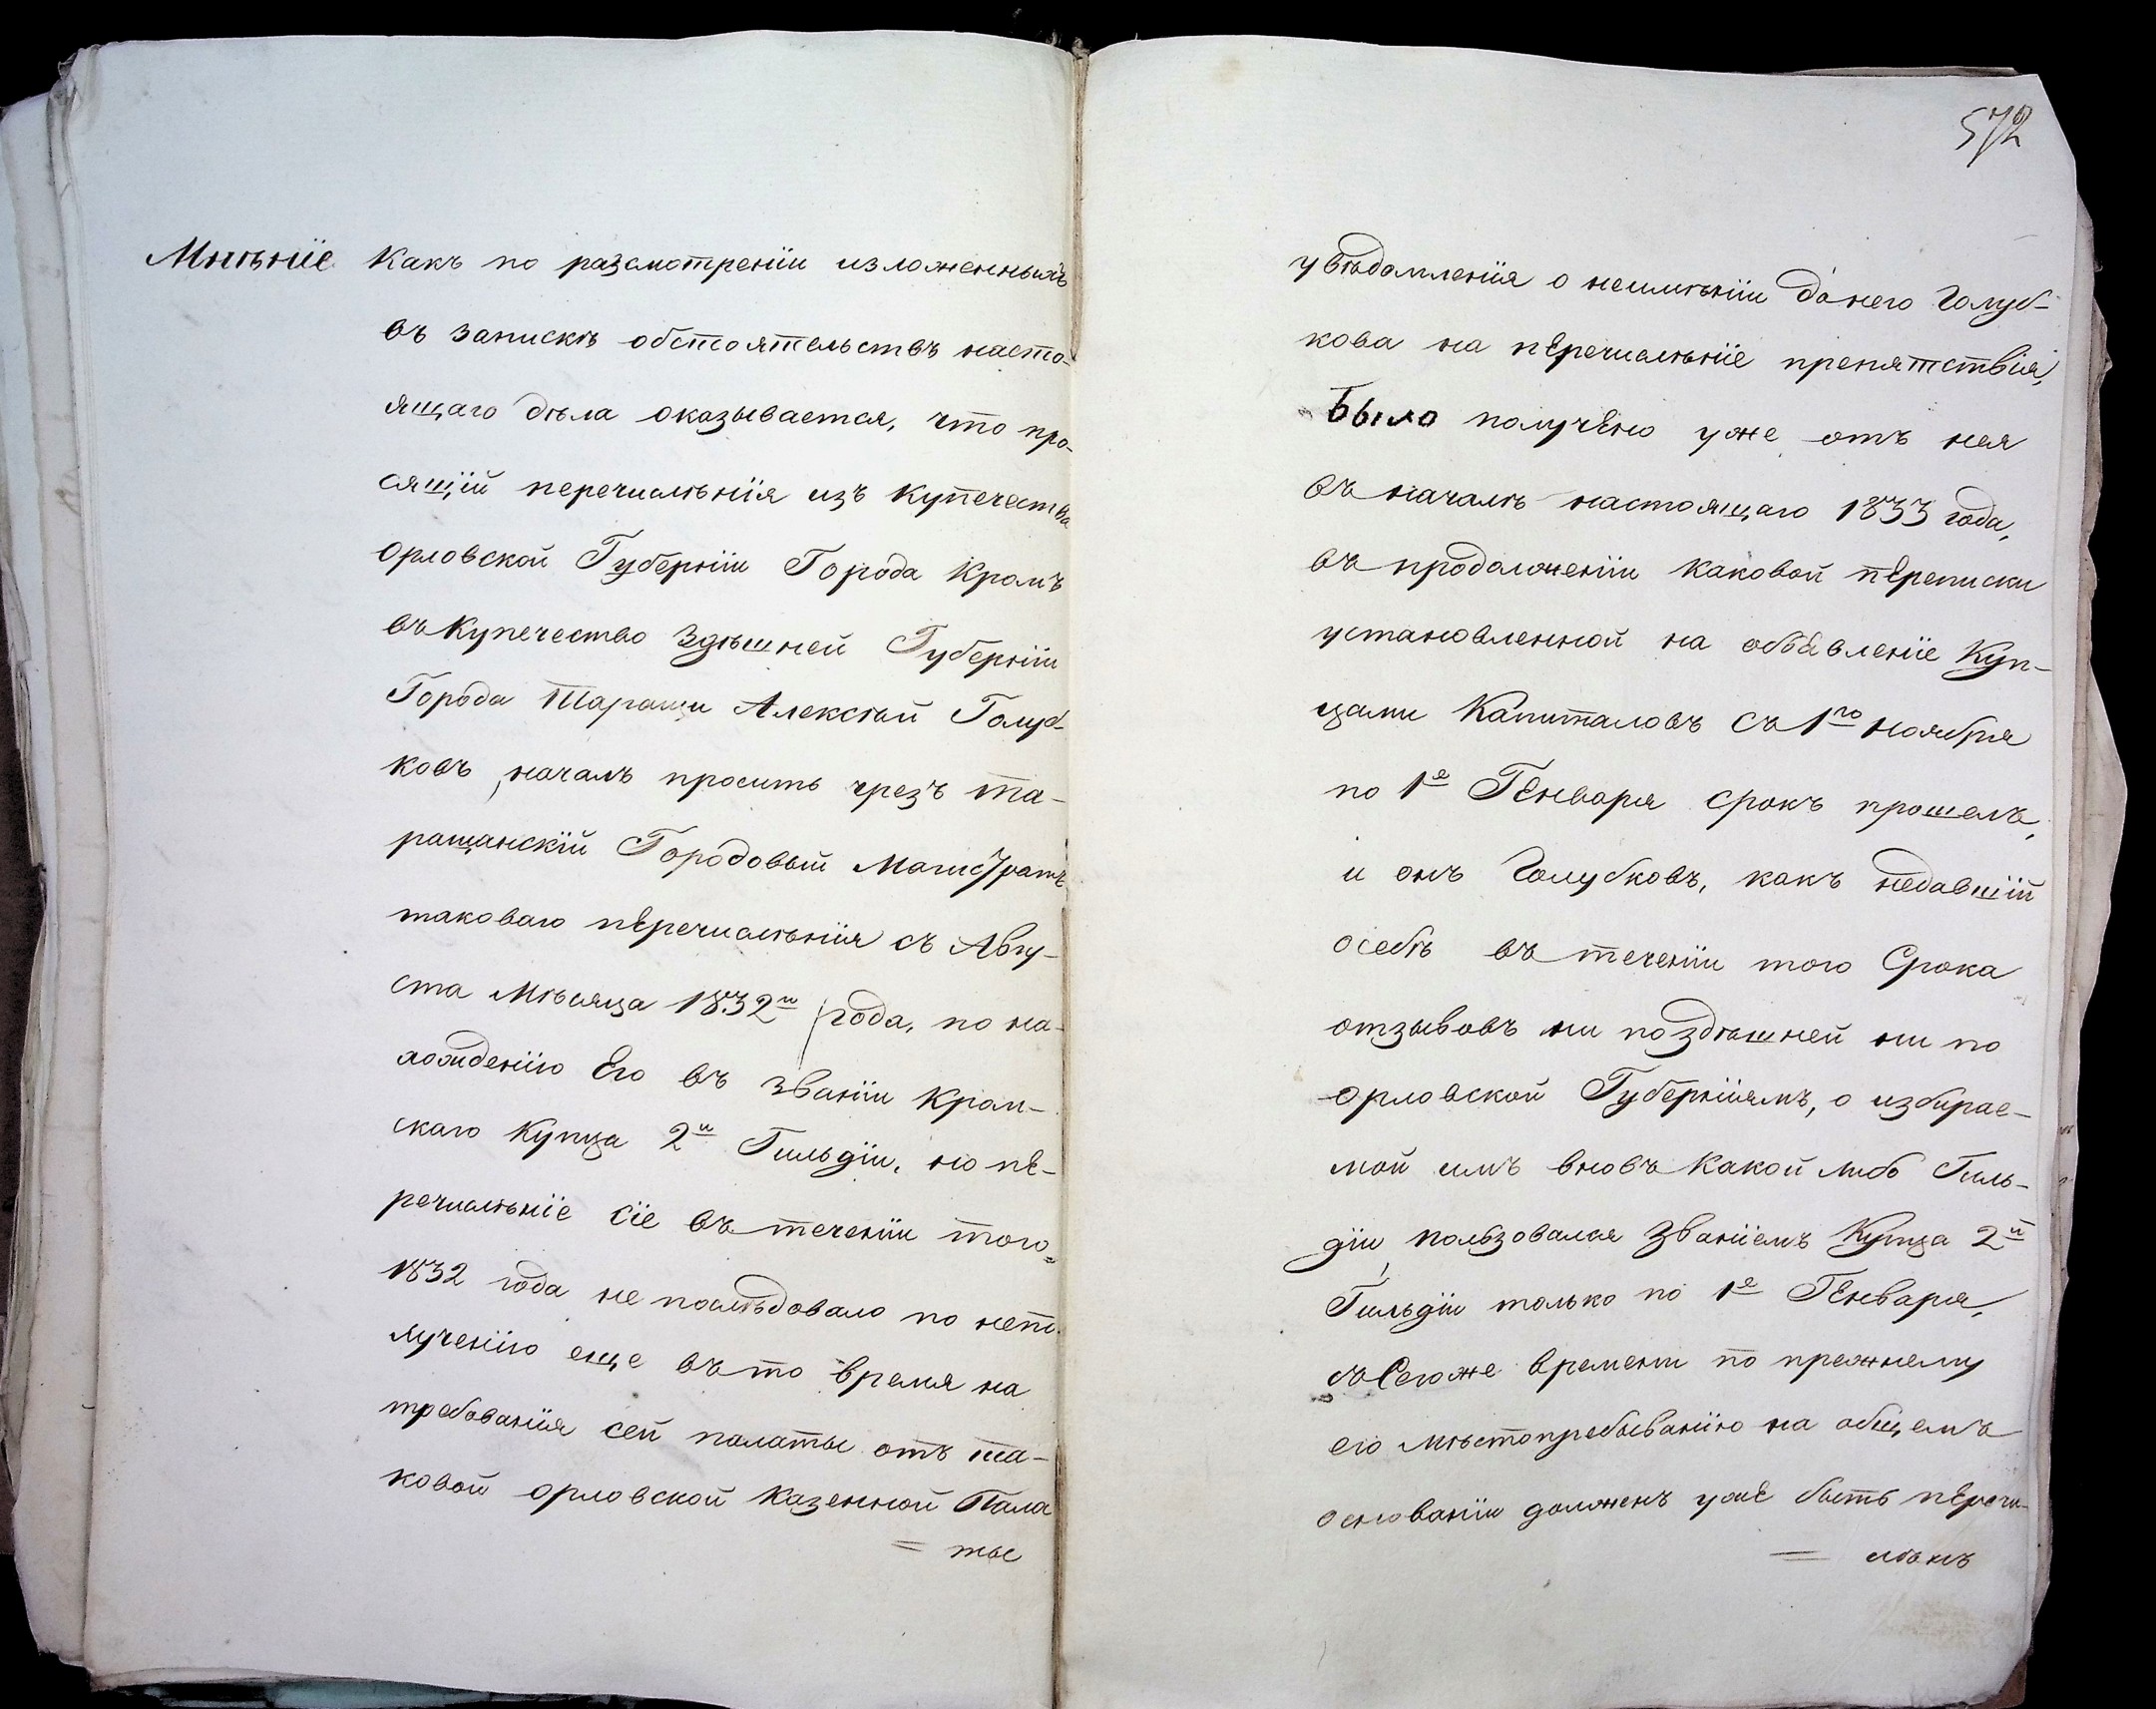 Мнѣніе Какъ по разсмотреніи изложенныхъ
въ запискѣ обстоятельствъ насто-
ящаго дѣла оказывается, что про-
сящій перечисленія изъ купечества
Орловской Губерніи Города Кромъ
въ купечество здѣшней Губерніи
Города Таращи Алексѣй Голуб-
ковъ, началъ просить чрезъ та-
ращанскій Городовый Магистратъ
таковаго перечисленія съ Авгу-
ста Мѣсяца 1832 го года, по на-
хожденію Его въ званіи Кром-
скаго Купца 2й Гильдіи, но пе-
речисленіе сіе въ теченіи того=
1832 года не послѣдовало по непо-
лученію еще въ то время на
требованія сей палаты отъ та-
ковой Орловской Казенной Пала
= ты
572
увѣдомленія о неимѣніи до него Голуб-
кова на перечисленіе препятствія,
Было получено уже отъ нея
въ началѣ настоящаго 1833 года,
въ продолженіи каковой переписки
установленной на объявленіе Куп-
цами Капиталовъ съ 1го ноября
по 1е Генваря срокъ прошелъ,
и онъ Голубковъ, какъ недавшій
о себѣ въ теченіи того Срока
отзывовъ ни по здѣшней ни по
Орловской Губерніямъ, о избирае-
мой имъ вновь какой либо Гиль-
діи, пользовался званіемъ Купца 2й
Гильдіи только по 1е Генваря,
съ Сегоже времени по прежнему
его мѣстопребыванію на общемъ
основаніи долженъ уже быть перечи-
= сленъ